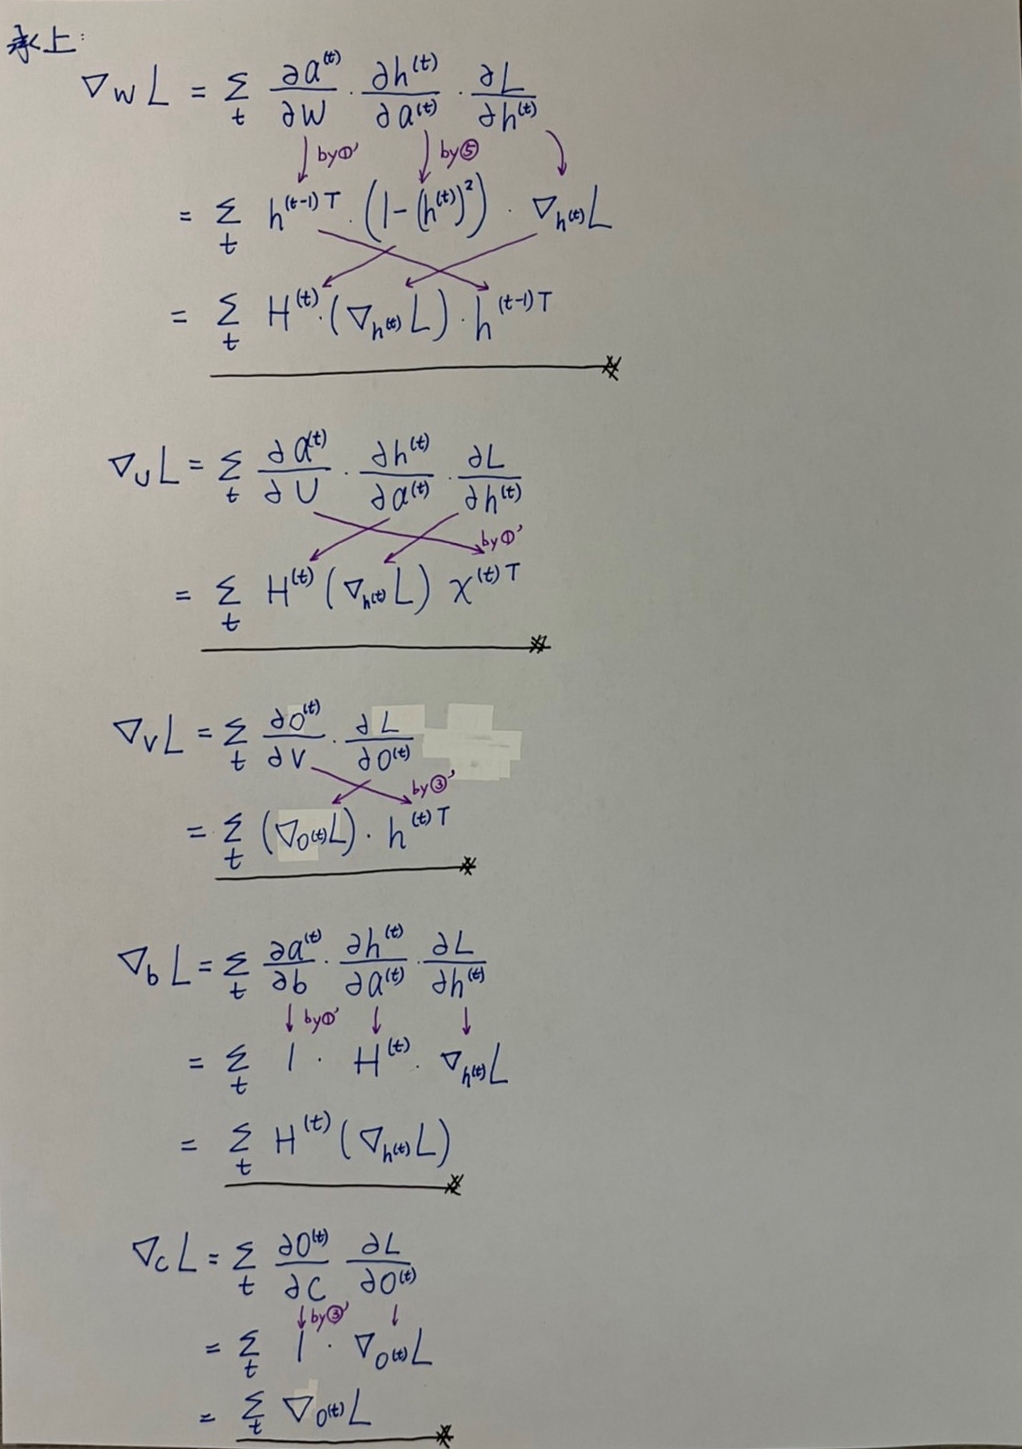 承上:
∇_W L = Σ_t ∂a^(t)/∂W · ∂h^(t)/∂a^(t) · ∂L/∂h^(t)
by①' by⑤
= Σ_t h^(t-1)T · (1-(h^(t))²) · ∇_h^(t) L
= Σ_t H^(t) · (∇_h^(t) L) · h^(t-1)T
∇_U L = Σ_t ∂a^(t)/∂U · ∂h^(t)/∂a^(t) · ∂L/∂h^(t)
by①'
= Σ_t H^(t) (∇_h^(t) L) x^(t)T
∇_V L = Σ_t ∂O^(t)/∂V · ∂L/∂O^(t)
by③'
= Σ_t (∇_O^(t) L) · h^(t)T
∇_b L = Σ_t ∂a^(t)/∂b · ∂h^(t)/∂a^(t) · ∂L/∂h^(t)
by①'
= Σ_t 1 · H^(t) · ∇_h^(t) L
= Σ_t H^(t) (∇_h^(t) L)
∇_C L = Σ_t ∂O^(t)/∂C ∂L/∂O^(t)
by③'
= Σ_t 1 · ∇_O^(t) L
= Σ_t ∇_O^(t) L